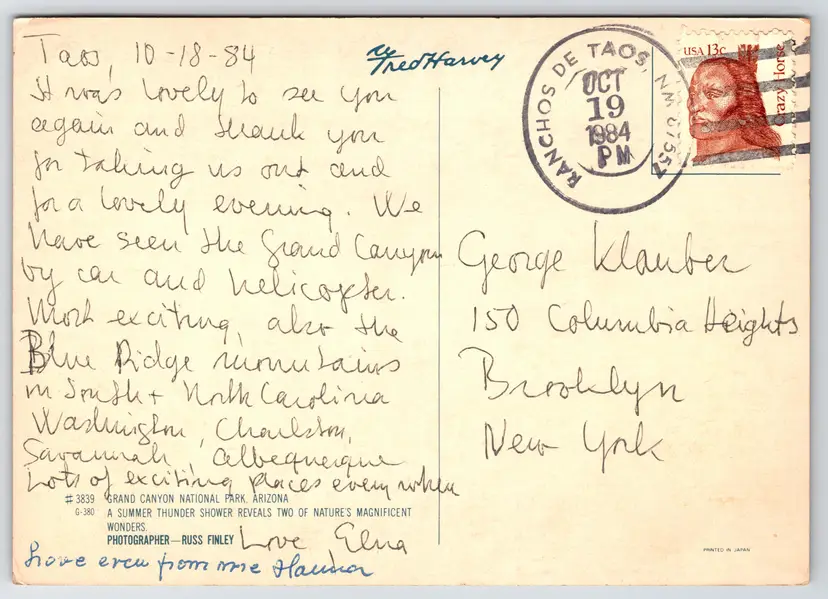 Taos, 10-18-84
It was lovely to see you
again and thank you
for taking us out and
for a lovely evening. We
have seen the Grand Canyon
by car and helicopter.
Most exciting, also the
Blue Ridge mountains
in South + North Carolina
Washington, Charlston,
Savannah, Albequerque
Lots of exciting places everywhere
Love, Elna
Love even from me Hanna
Fred Harvey
#3839 GRAND CANYON NATIONAL PARK, ARIZONA
G-380 A SUMMER THUNDER SHOWER REVEALS TWO OF NATURE'S MAGNIFICENT
WONDERS.
PHOTOGRAPHER—RUSS FINLEY
RANCHOS DE TAOS, NM 87557
OCT
19
1984
PM
USA 13c
Crazy Horse
George Klauber
150 Columbia Heights
Brooklyn
New York
PRINTED IN JAPAN